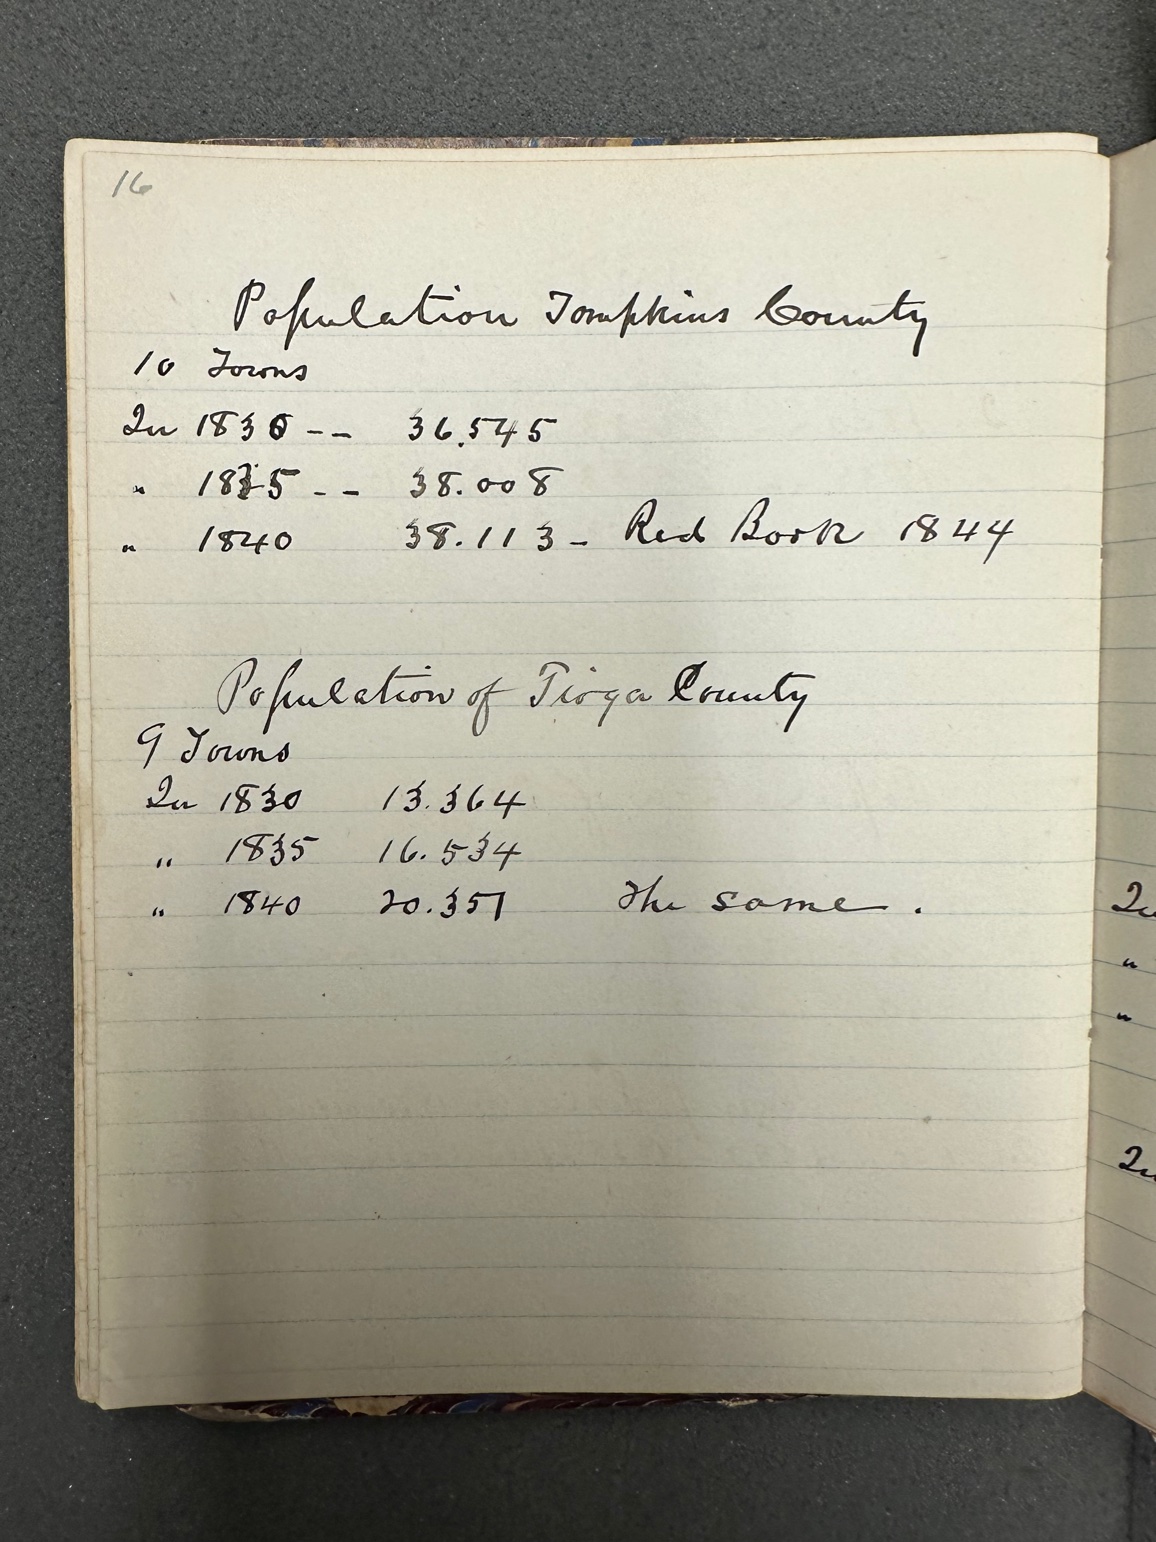 16
Population Tompkins County
10 Towns
In 1830 -- 36,545
" 1835 -- 38.008
" 1840 38.113 - Red Book 1844
Population of Tioga County
9 Towns
In 1830 13.364
" 1835 16.534
" 1840 20.351 The same.
In
"
"
In